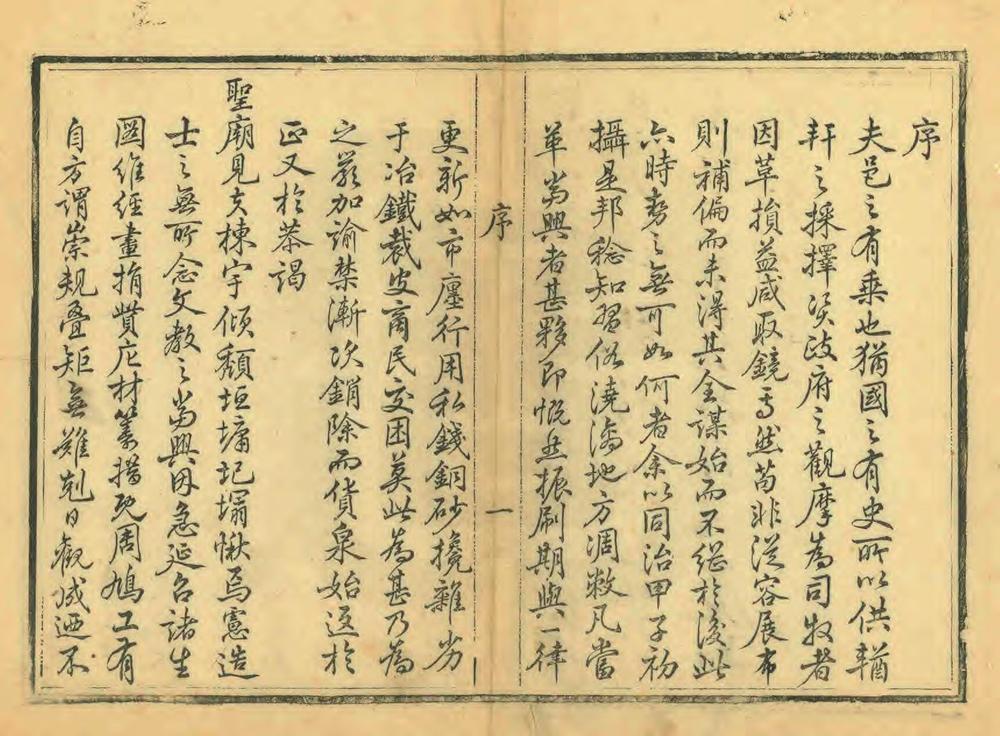 序
夫邑之有乘也猶國之有史所以供輶
軒之採擇資政府之觀摩為司牧者
因革損益咸取鏡焉然苟非從容展布
則補偏而未得其全謀始而不繼於後此
亦時勢之無可如何者余以同治甲子初
攝是邦稔知習俗澆漓地方凋敝凡當
革當興者甚夥即慨然振刷期與一律
序
一
更新如市廛行用私錢銅砂攙雜劣
于冶鐵裁皮商民交困莫此為甚乃為
之嚴加諭禁漸次銷除而貨泉始返於
正又於恭謁
聖廟見夫棟宇傾頹垣墉圮塌愀焉憲造
士之無所念文教之當興因急延召諸生
圖維經畫捐貲庀材籌措既周鳩工有
自方謂崇規疊矩無難剋日觀成迺不